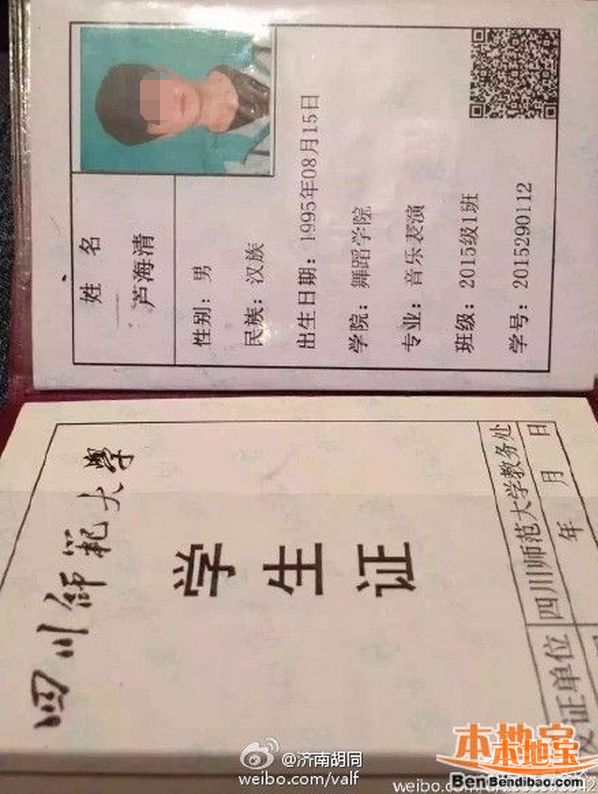 姓 名
芦海清
性别：男
民族：汉族
出生日期：1995年08月15日
学院：舞蹈学院
专业：音乐表演
班级：2015级1班
学号：2015290112
四川师范大学
学生证
发证单位 四川师范大学教务处
年 月 日
@济南胡同
weibo.com/valf
weibo.com/
本地宝
Bendibao.com